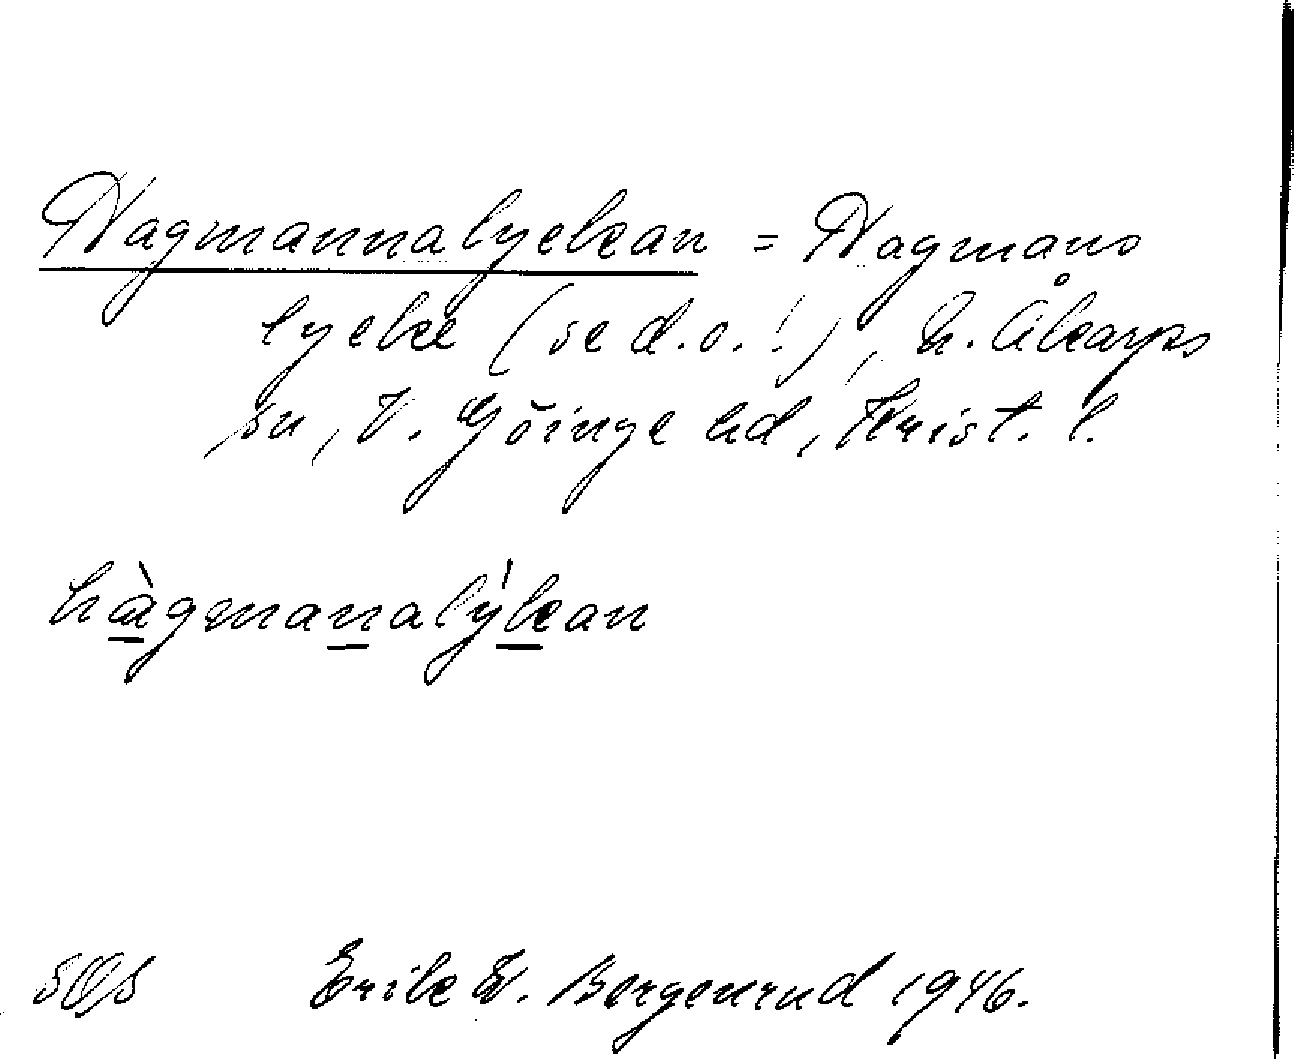 Hagmannalyckan = Hagmans
lycke (se d.o.!), N. Åkarps
sn, V. Göinge hd, Krist. l.
hàgmanalỳkan
SOS Erik W. Bergenrud 1946.